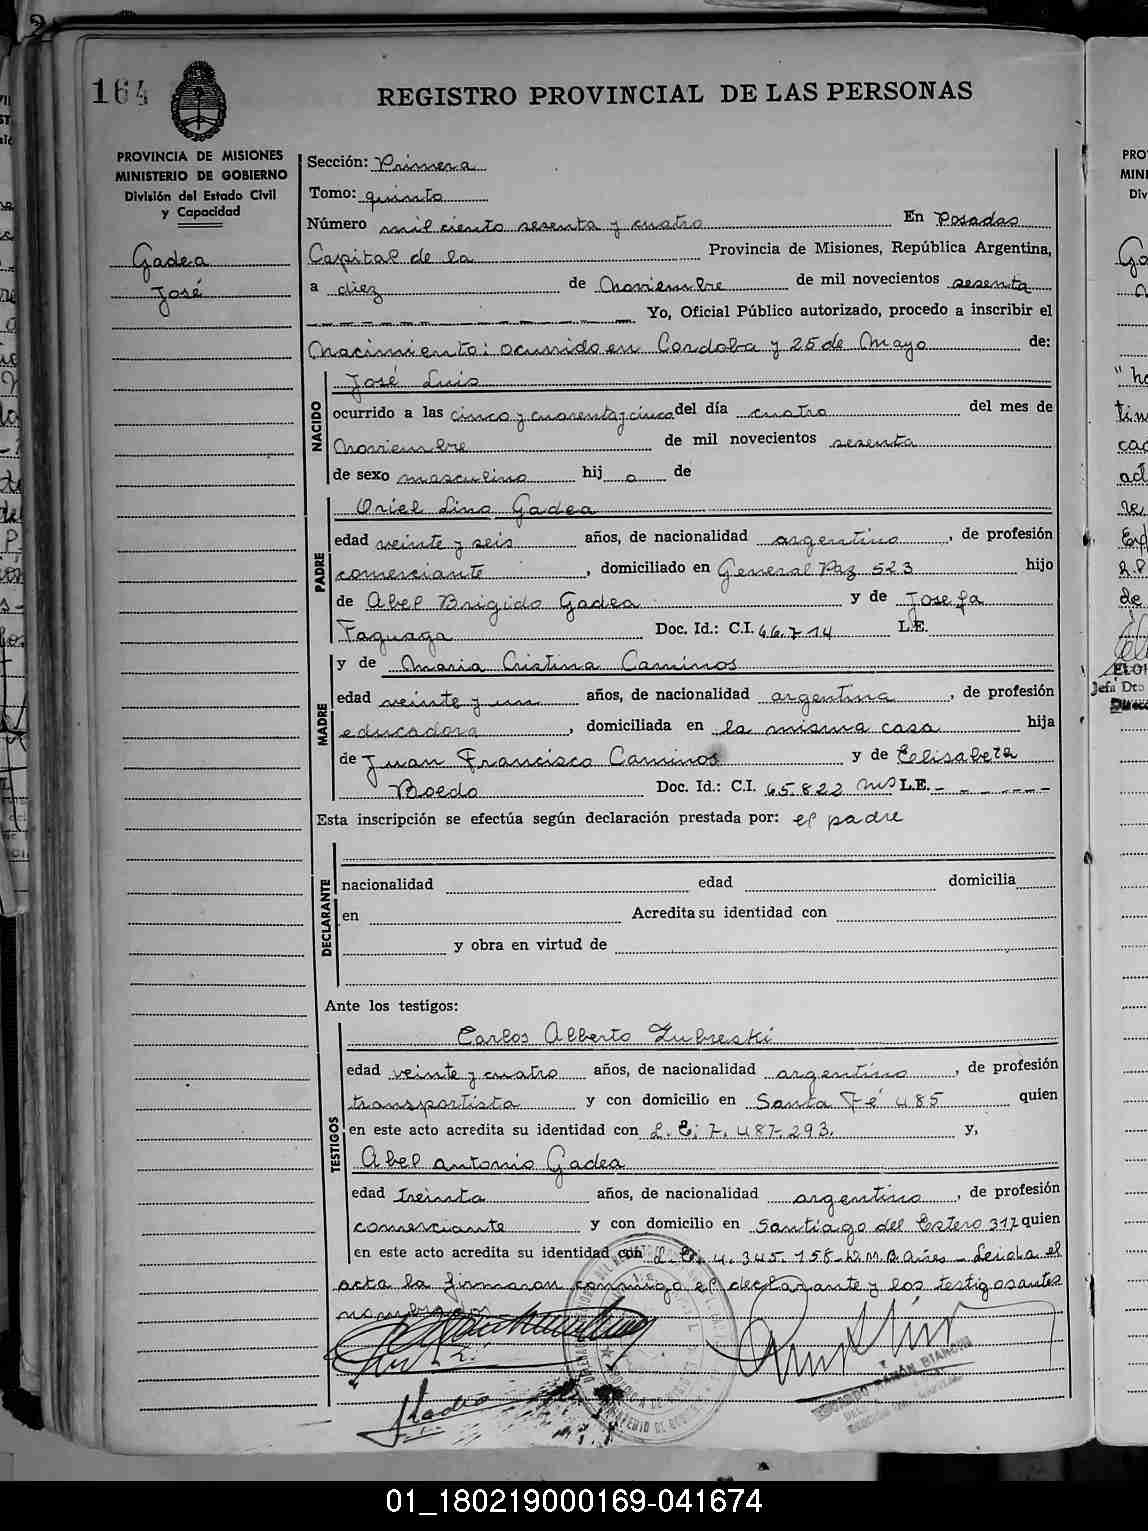 164
REGISTRO PROVINCIAL DE LAS PERSONAS
PROVINCIA DE MISIONES
MINISTERIO DE GOBIERNO
División del Estado Civil
y Capacidad
Gadea
José
Sección: Primera
Tomo: quinto
Número mil ciento sesenta y cuatro En Posadas
Capital de la Provincia de Misiones, República Argentina,
a diez de Noviembre de mil novecientos sesenta
Yo, Oficial Público autorizado, procedo a inscribir el
Nacimiento: ocurrido en Cordoba y 25 de Mayo de:
NACIDO
José Luis
ocurrido a las cinco y cuarenta y cinco del día cuatro del mes de
Noviembre de mil novecientos sesenta
de sexo masculino hij o de
PADRE
Oriel Lino Gadea
edad veinte y seis años, de nacionalidad argentino, de profesión
comerciante, domiciliado en General Paz 523 hijo
de Abel Brigido Gadea y de Josefa
Faguaga Doc. Id.: C.I. 66.714 L.E.
MADRE
y de Maria Cristina Caminos
edad veinte y un años, de nacionalidad argentina, de profesión
educadora, domiciliada en la misma casa hija
de Juan Francisco Caminos y de Elisabeta
Boedo Doc. Id.: C.I. 65.822 Mns L.E. - - - - - -
Esta inscripción se efectúa según declaración prestada por: el padre
DECLARANTE
nacionalidad edad domicilia
en Acredita su identidad con
y obra en virtud de
Ante los testigos:
TESTIGOS
Carlos Alberto Zubreski
edad veinte y cuatro años, de nacionalidad argentino, de profesión
transportista y con domicilio en Santa Fé 485 quien
en este acto acredita su identidad con L. E: 7.487.293. y,
Abel Antonio Gadea
edad treinta años, de nacionalidad argentino, de profesión
comerciante y con domicilio en Santiago del Estero 317 quien
en este acto acredita su identidad con L. E. 4.345.158 D.M.B Aires - Leida el
acta la firmaron conmigo el declarante y los testigos antes
nombrados
Gadea
RAMÓN BIANCHI
01_180219000169-041674